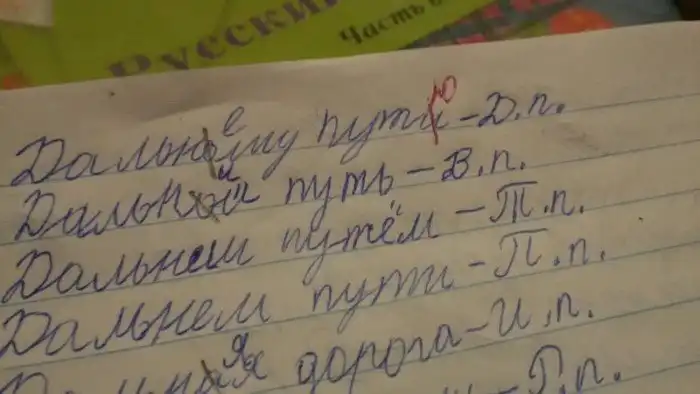 Русский
Часть
Дальнему путю - Д.п.
Дальний путь - В.п.
Дальнем путём - Т.п.
Дальнем пути - П.п.
дорога - И.п.
- Р.п.